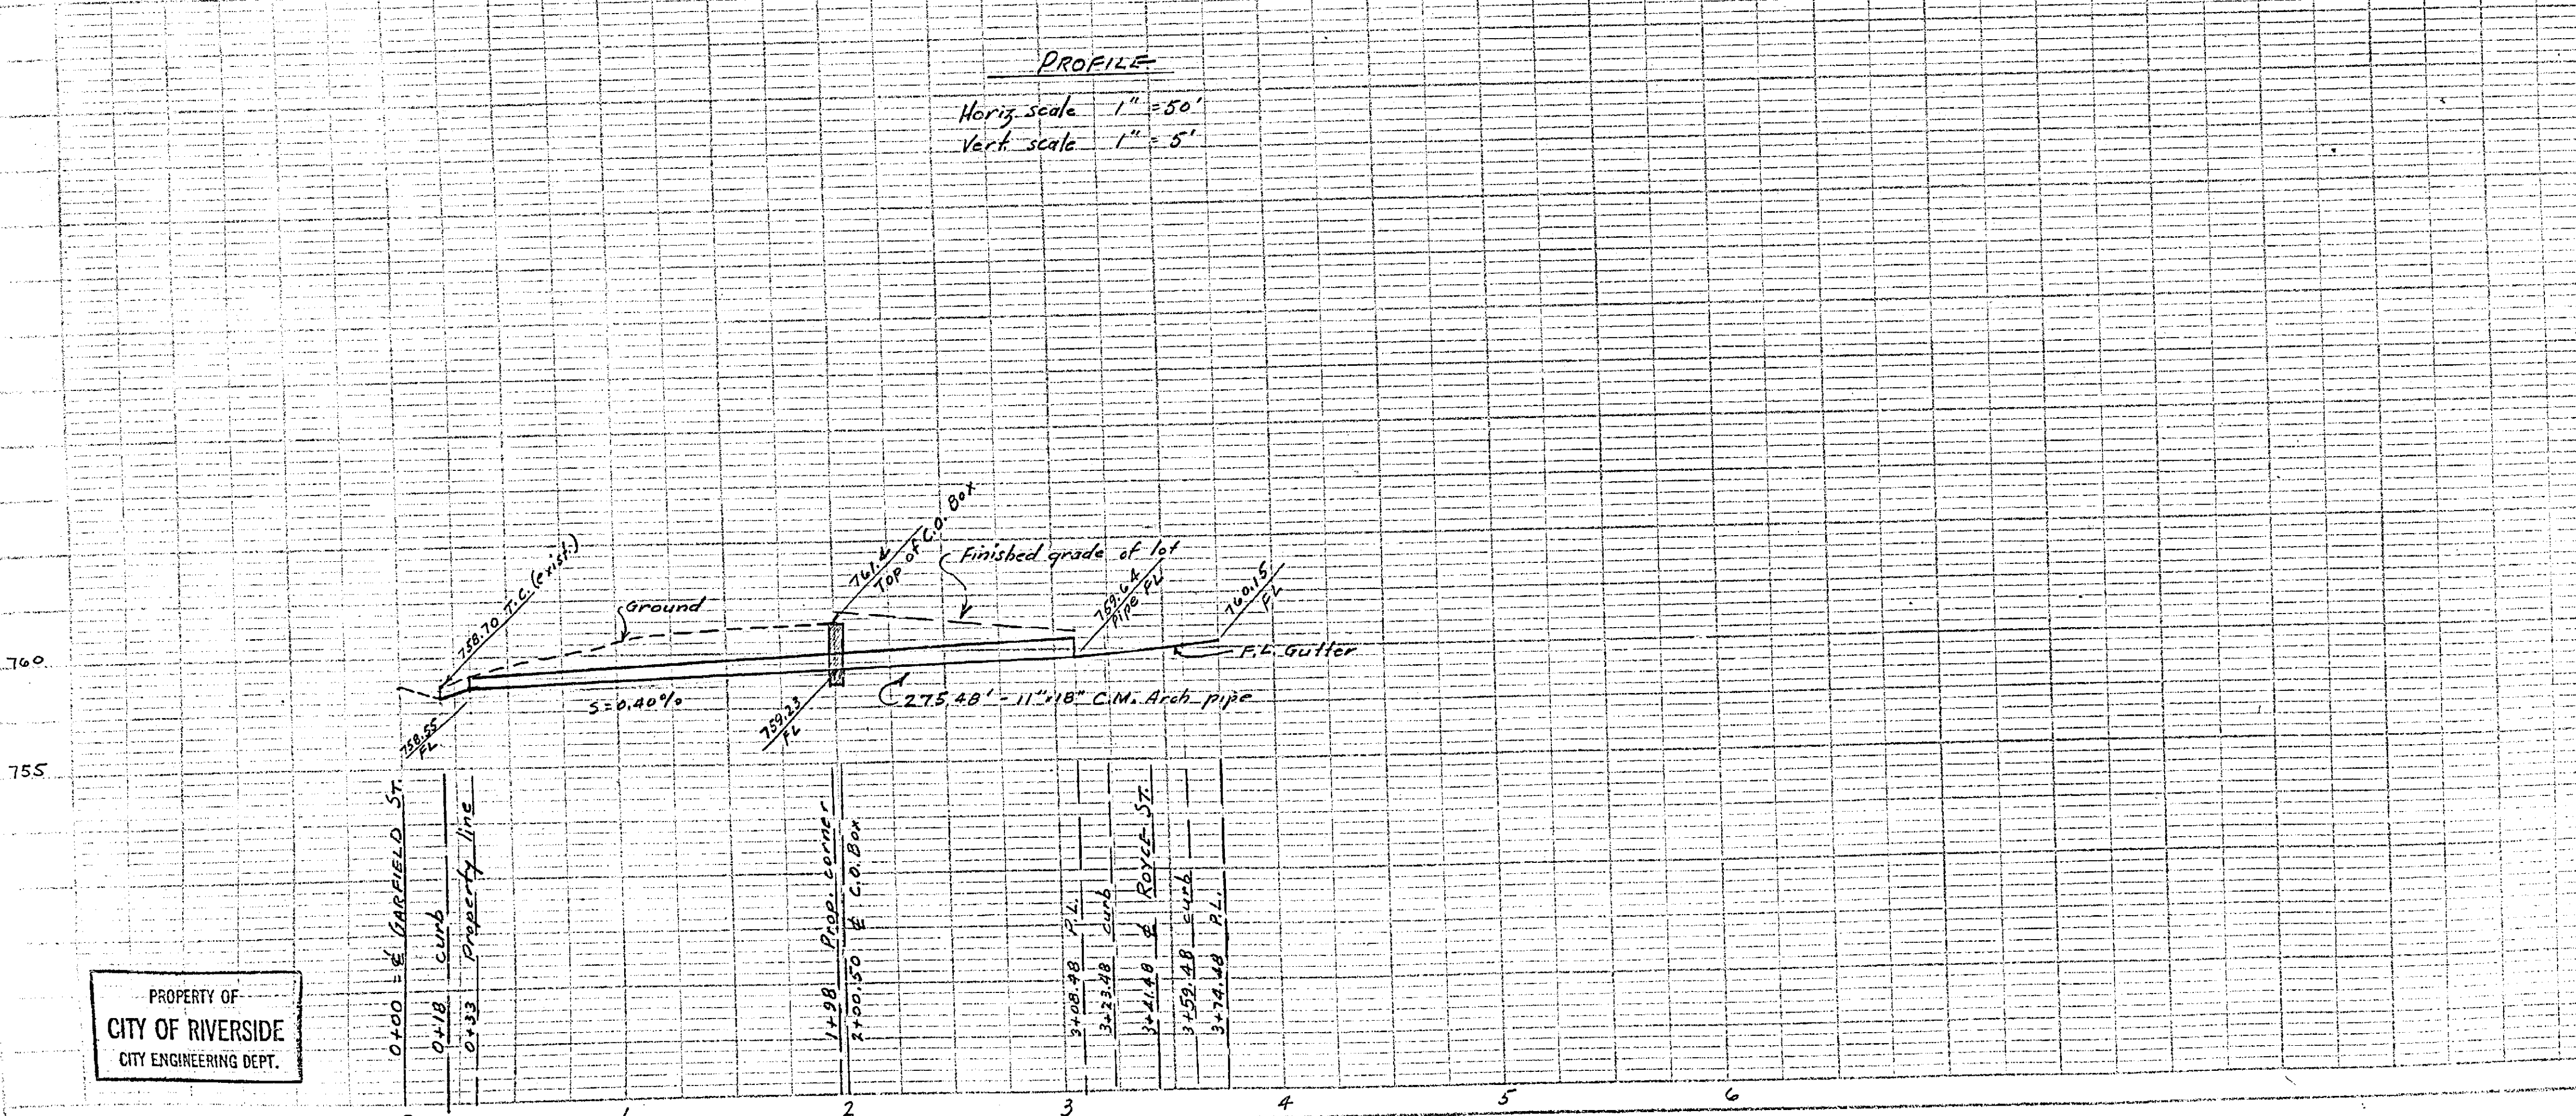 PROFILE
Horiz. scale 1" = 50'
Vert. scale 1" = 5'
758.70 T.C. (exist.)
Ground
Top of C.O. Box
Finished grade of lot
759.64
Pipe FL
760.15
FL
F.L. Gutter
760
S=0.40%
275.48' - 11"x18" C.M. Arch pipe
758.55
FL
759.23
FL
755
0+00 = ℄ GARFIELD ST.
0+18 curb
0+33 Property line
1+98 Prop. corner
2+00.50 ℄ C.O. Box
3+08.48 P.L.
3+23.48 curb
3+41.48 ℄ ROYCE ST.
3+59.48 curb
3+74.48 P.L.
PROPERTY OF
CITY OF RIVERSIDE
CITY ENGINEERING DEPT.
1
2
3
4
5
6